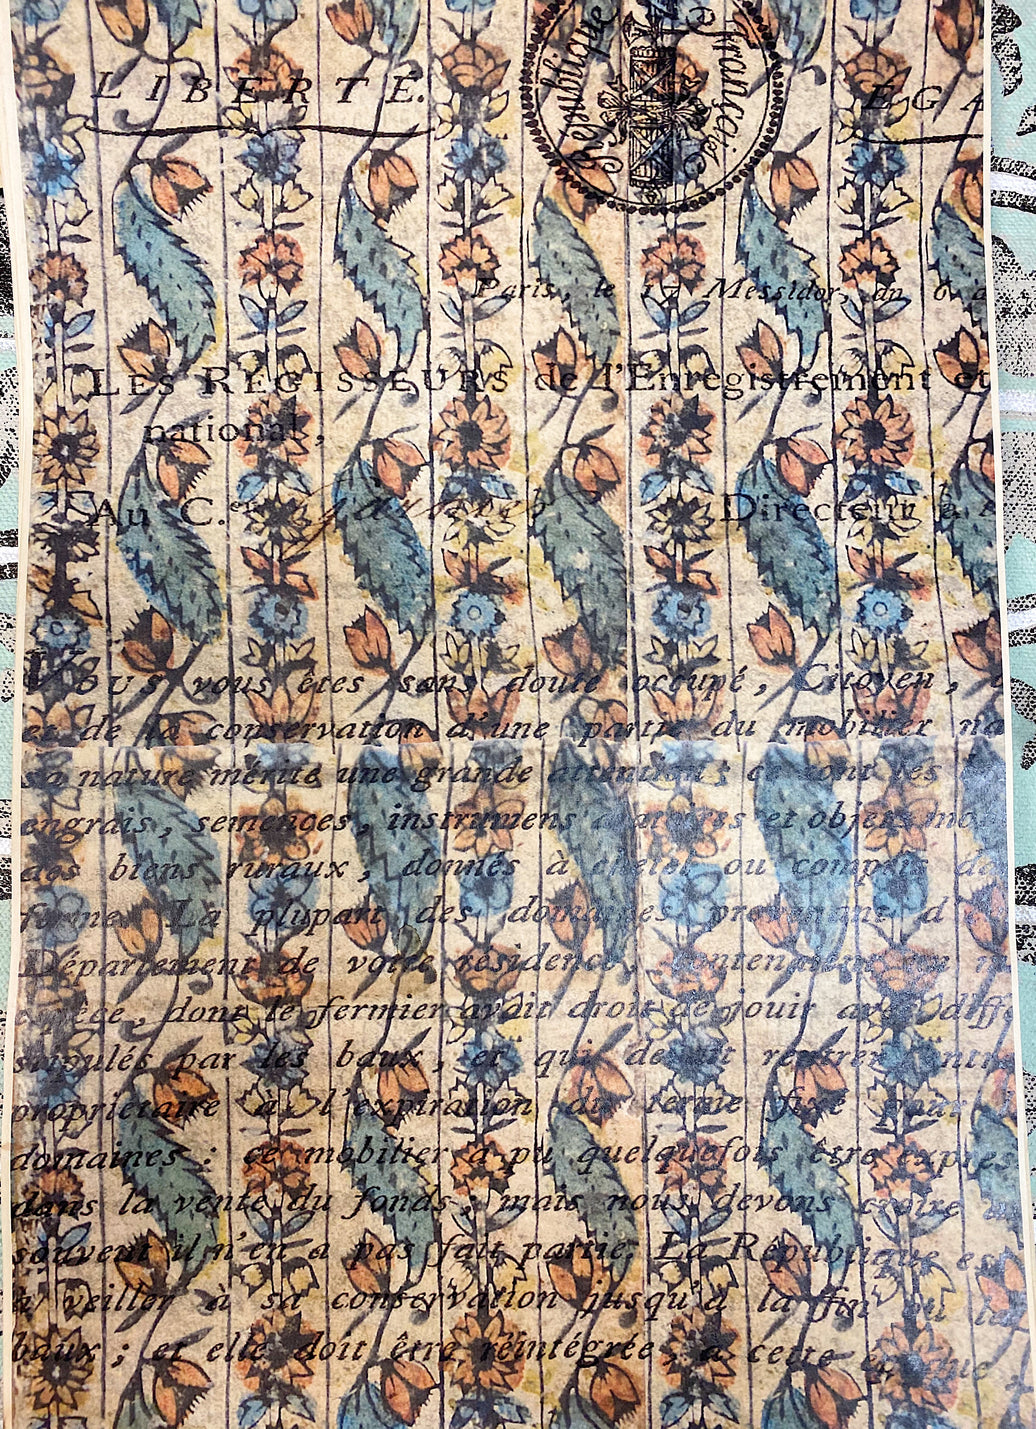 République Française
LIBERTÉ. EGA
Paris, le 17 Messidor, an 6
LES RÉGISSEURS de l'Enregistrement et
national,
Au C.en Directeur
Vous vous êtes sans doute occupé, Citoyen,
et de la conservation d'une partie du mobilier na
sa nature mérite une grande attention; ce sont les
engrais, semences, instrumens aratoires et objets mo
des biens ruraux, donnés à cheptel ou compris
ferme. La plupart des domaines provenant d'
Département de votre résidence, contenaient un m
espèce, dont le fermier avait droit de jouir avec diffé
stipulés par les baux, et qui devait rentrer entr
proprietaire à l'expiration du terme fixé pour
domaines: ce mobilier a pu quelquefois être expres
dans la vente du fonds; mais nous devons croire
souvent il n'en a pas fait partie. La République est
à veiller à sa conservation jusqu'à la fin
baux; et elle doit être réintégrée, à cette époque,